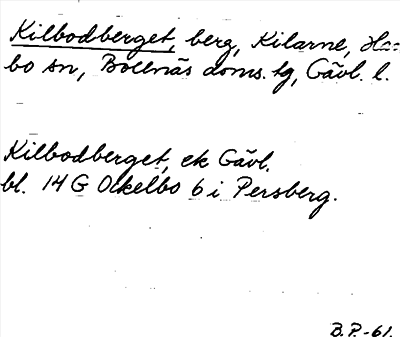 Kilbodberget, berg, Kilarne, Ha=
bo sn, Bollnäs doms. tg, Gävl. l.
Kilbodberget, ek Gävl.
bl. 14 G Ockelbo 6 i Persberg.
B.P.-61.